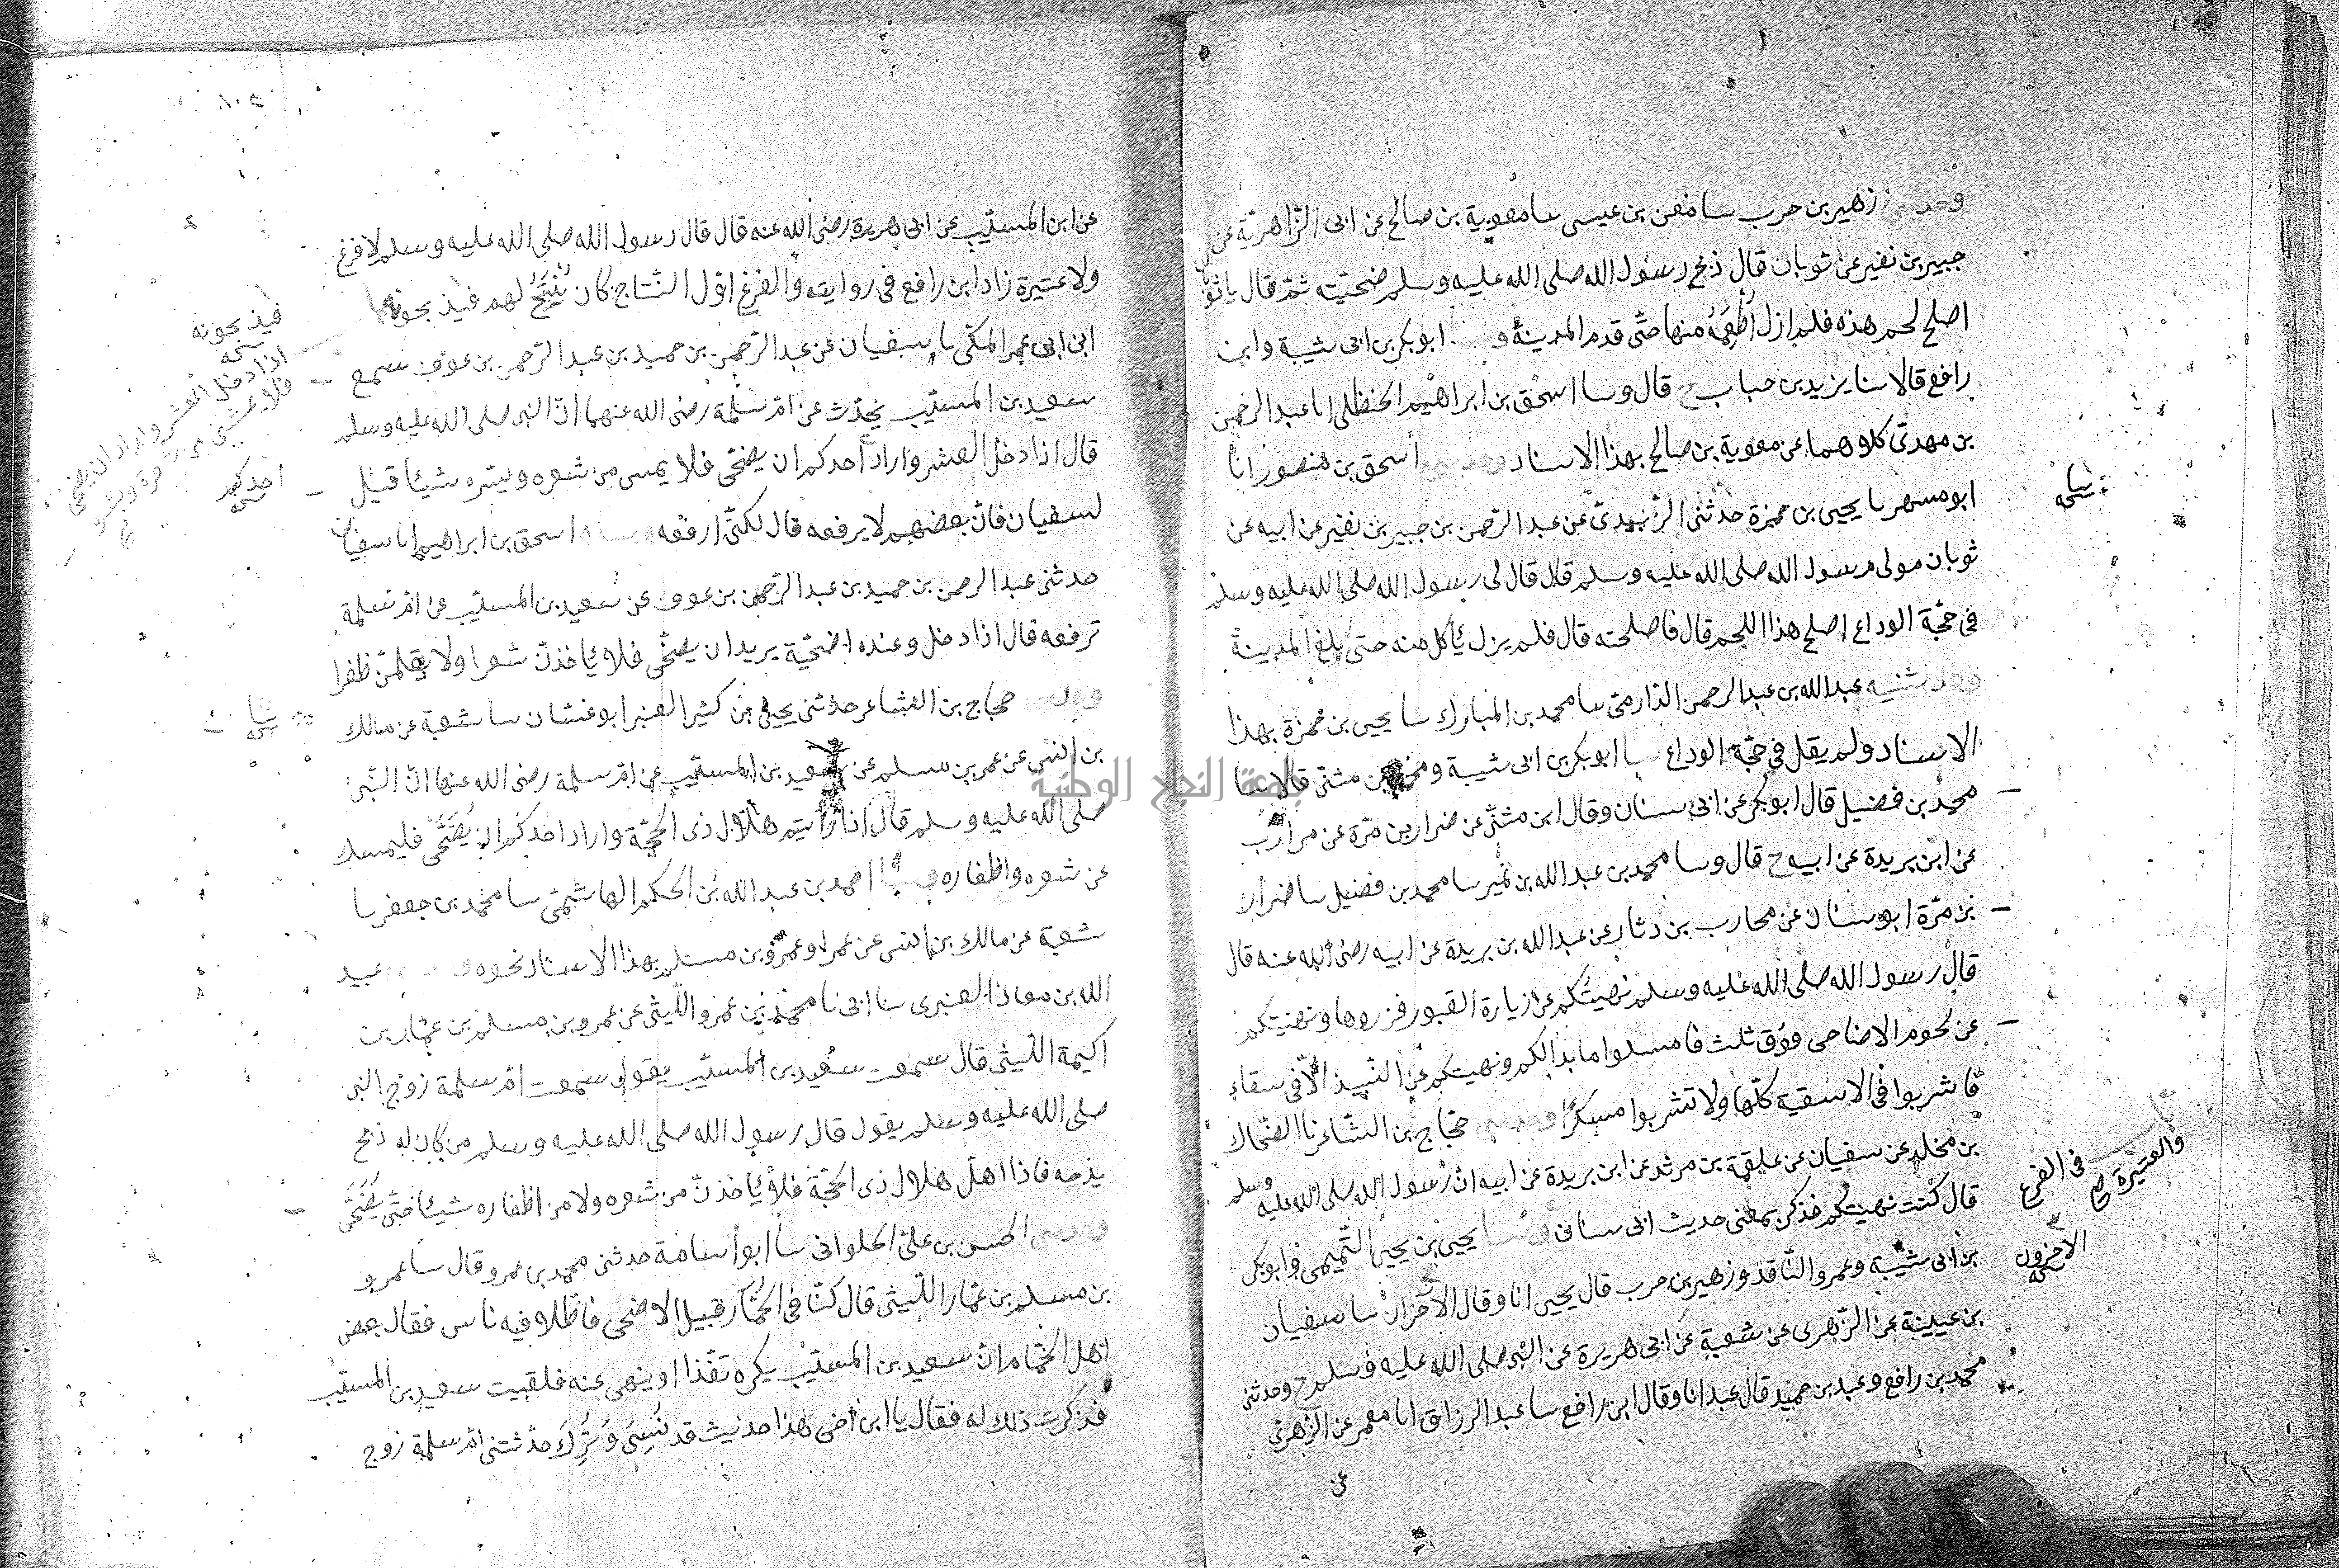 وحدثنى زهير بن حرب سا معن بن عيسى سا معوية بن صالح عن ابى الزّاهريّة عن
جبير بن نفير عن ثوبان قال ذبح رسول الله صلى الله عليه وسلم ضحيّته ثمّ قال يا ثوبان
اصلح لحم هذه فلم ازل أُطْعِمُهُ منها حتّى قدم المدينة و ابو بكر بن ابى شيبة وابن
رافع قالا سا يزيد بن حباب ح قال وسا اسحق بن ابراهيم الحنظلى انا عبد الرحمن
بن مهدىّ كلاهما عن معوية بن صالح بهذا الاسناد وحدثنى اسحق بن منصور انا
ابو مسهر سا يحيى بن حمزة حدثنى الزّبيدىّ عن عبد الرّحمن بن جبير بن نفير عن ابيه عن
ثوبان مولى رسول الله صلى الله عليه وسلم قال قال لى رسول الله صلى الله عليه وسلم
فى حجّة الوداع اصلح هذا اللحم قال فاصلحته قال فلم يزل يأكل منه حتى بلغ المدينة
وحدثنيه عبد الله بن عبد الرحمن الدّارمىّ سا محمد بن المبارك سا يحيى بن حمزة بهذا
الاسناد ولم يقل فى حجّة الوداع سا ابو بكر بن ابى شيبة ومحمد بن مثنّى قالا سا
محمد بن فضيل قال ابو بكر عن ابى سنان وقال ابن مثنّى عن ضرار بن مرّة عن محارب
عن ابن بريدة عن ابيه ح قال وسا محمد بن عبد الله بن نمير سا محمد بن فضيل سا ضرار
بن مرّة ابو سنان عن محارب بن دثار عن عبد الله بن بريدة عن ابيه رضى الله عنه قال
قال رسول الله صلى الله عليه وسلم نهيتُكم عن زيارة القبور فزوروها ونهيتكم
عن لحوم الاضاحى فوق ثلث فامسكوا ما بدا لكم ونهيتكم عن النّبيذ الّا فى سقاء
فاشربوا فى الاسقية كلّها ولا تشربوا مسكرًا وحدثنى حجّاج بن الشّاعر نا الضّحاك
بن مخلد عن سفيان عن علقمة بن مرثد عن ابن بريدة عن ابيه انّ رسول الله صلى الله عليه وسلم
قال كنت نهيتكم فذكر بمعنى حديث ابى سنان وسا يحيى بن يحيى التّميمى وابو بكر
بن ابى شيبة وعمرو النّاقد وزهير بن حرب قال يحيى انا وقال الآخران سا سفيان
بن عيينة عن الزّهرى عن شعبة عن ابى هريرة عن النّبى صلى الله عليه وسلم ح وحدثنى
محمد بن رافع وعبد بن حميد قال عبد انا وقال ابن رافع سا عبد الرزاق انا معمر عن الزّهرى
عن
باب
فى الفرع
والعتيرة
الآخرون
عن ابن المسيّب عن ابى هريرة رضى الله عنه قال قال رسول الله صلى الله عليه وسلم لا فرع
ولا عتيرة زاد ابن رافع فى روايته والفرع اوّل النتاج كان يُنْتَجُ لهم فيذبحونه
ابن ابى عمر المكّى سا سفيان عن عبد الرّحمن بن حميد بن عبد الرّحمن بن عوف سمع
سعيد بن المسيّب يحدّث عن امّ سلمة رضى الله عنهما انّ النبى صلى الله عليه وسلم
قال اذا دخل العشر واراد أحدكم ان يضحّى فلا يمسّ من شعره وبشره شيئا قيل
لسفيان فانّ بعضهم لا يرفعه قال لكنّى ارفعه اسحق بن ابراهيم انا سفيان
حدثنى عبد الرحمن بن حميد بن عبد الرّحمن بن عوف عن سعيد بن المسيّب عن امّ سلمة
ترفعه قال اذا دخل وعنده اضحيّة يريد ان يضحّى فلا يأخذنّ شعرا ولا يقلمنّ ظفرا
وحدثنى حجاج بن الشاعر حدثنى يحيى بن كثير العنبر ابو غسّان سا شعبة عن مالك
بن انس عن عمر بن مسلم عن سعيد بن المسيّب عن امّ سلمة رضى الله عنها انّ النّبىّ
صلى الله عليه وسلم قال اذا رأيتم هلال ذى الحجّة واراد احدكم ان يُضَحّى فليمسك
عن شعره واظفاره وسا احمد بن عبد الله بن الحكم الهاشمىّ سا محمد بن جعفر سا
شعبة عن مالك بن انس عن عمر او عمرو بن مسلم بهذا الاسناد نحوه عبيد
الله بن معاذ العنبرى سا ابى نا محمد بن عمرو اللّيثى عن عمرو بن مسلم بن عمّار بن
اكيمة اللّيثى قال سمعت سعيد بن المسيّب يقول سمعت امّ سلمة زوج النبى
صلى الله عليه وسلم يقول قال رسول الله صلى الله عليه وسلم من كان له ذبح
يذبحه فاذا اهلّ هلال ذى الحجّة فلا يأخذنّ من شعره ولا من اظفاره شيئا حتّى يُضَحّى
وحدثنى الحسن بن علىّ الحلوانى سا ابو أسامة حدثنى محمد بن عمرو قال سا عمرو
بن مسلم بن عمّار اللّيثى قال كنّا فى الحمّام قبيل الاضحى فاطّلا فيه ناس فقال بعض
اهل الحمّام انّ سعيد بن المسيّب يكره هذا او ينهى عنه فلقيت سعيد بن المسيّب
فذكرت ذلك له فقال يا ابن اخى هذا حديث قد نُسِىَ وَتُرِكَ حدّثتنى امّ سلمة زوج
فيذبحونه
اذا دخل العشر واراد ان يضحّى
احدكم
جامعة النجاح الوطنية